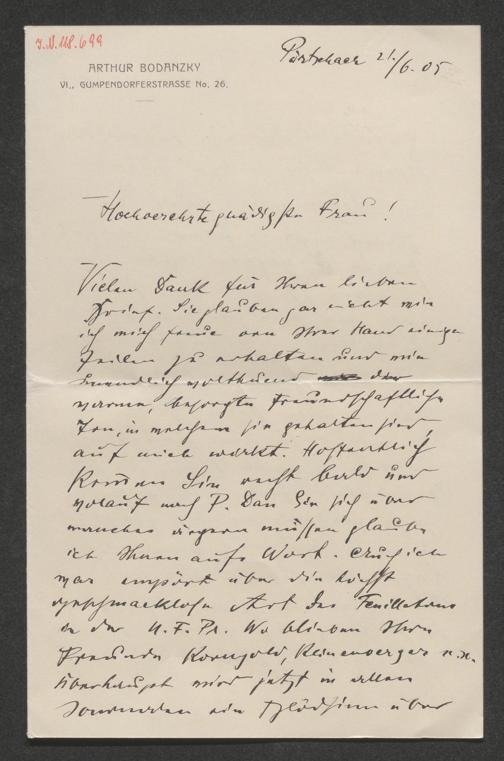 I.N. 118.699
ARTHUR BODANZKY
VI., GUMPENDORFERSTRASSE No. 26.
Pörtschach 21./6.05
Hochverehrte gnädigste Frau!
Vielen Dank für Ihren lieben
Brief. Sie glauben gar nicht wie
ich mich freue von Ihrer Hand einige
Zeilen zu erhalten und wie
unendlich wolthuend der
warme, besorgte freundschaftliche
Ton, in welchem sie gehalten sind,
auf mich wirkt. Hoffentlich
kommen Sie recht bald und
worauf nach P. Dass Sie sich über
manches ärgern müssen glaube
ich Ihnen aufs Wort. Auch ich
war empört über die höchst
geschmacklose Art des Feuilletons
in der N. F. Pr. Wo blieben Ihre
Freunde Korngold, Kleinenberger u.s.
überhaupt wird jetzt in allen
Journalen ein Blödsinn über